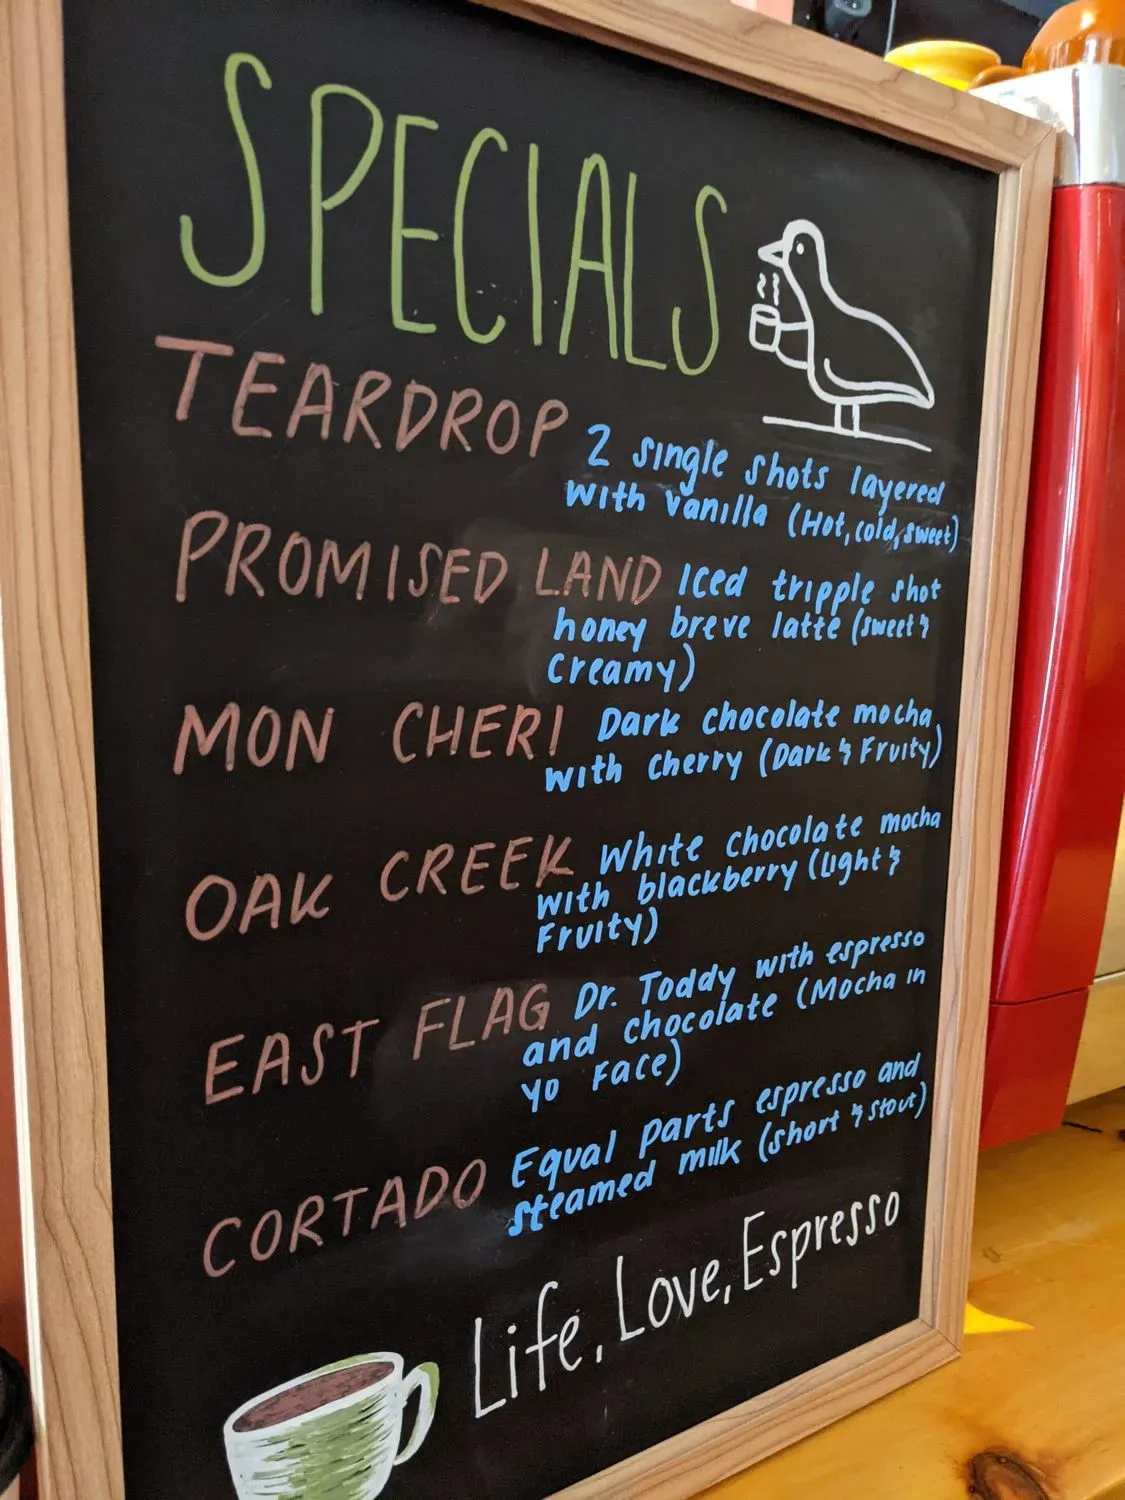 SPECIALS
TEARDROP 2 single shots layered
with vanilla (Hot, cold, sweet)
PROMISED LAND Iced tripple shot
honey breve latte (sweet &
Creamy)
MON CHERI Dark chocolate mocha
with cherry (Dark & Fruity)
OAK CREEK White chocolate mocha
with blackberry (Light &
Fruity)
EAST FLAG Dr. Toddy with espresso
and chocolate (Mocha in
yo Face)
CORTADO Equal parts espresso and
steamed milk (short & stout)
Life, Love, Espresso